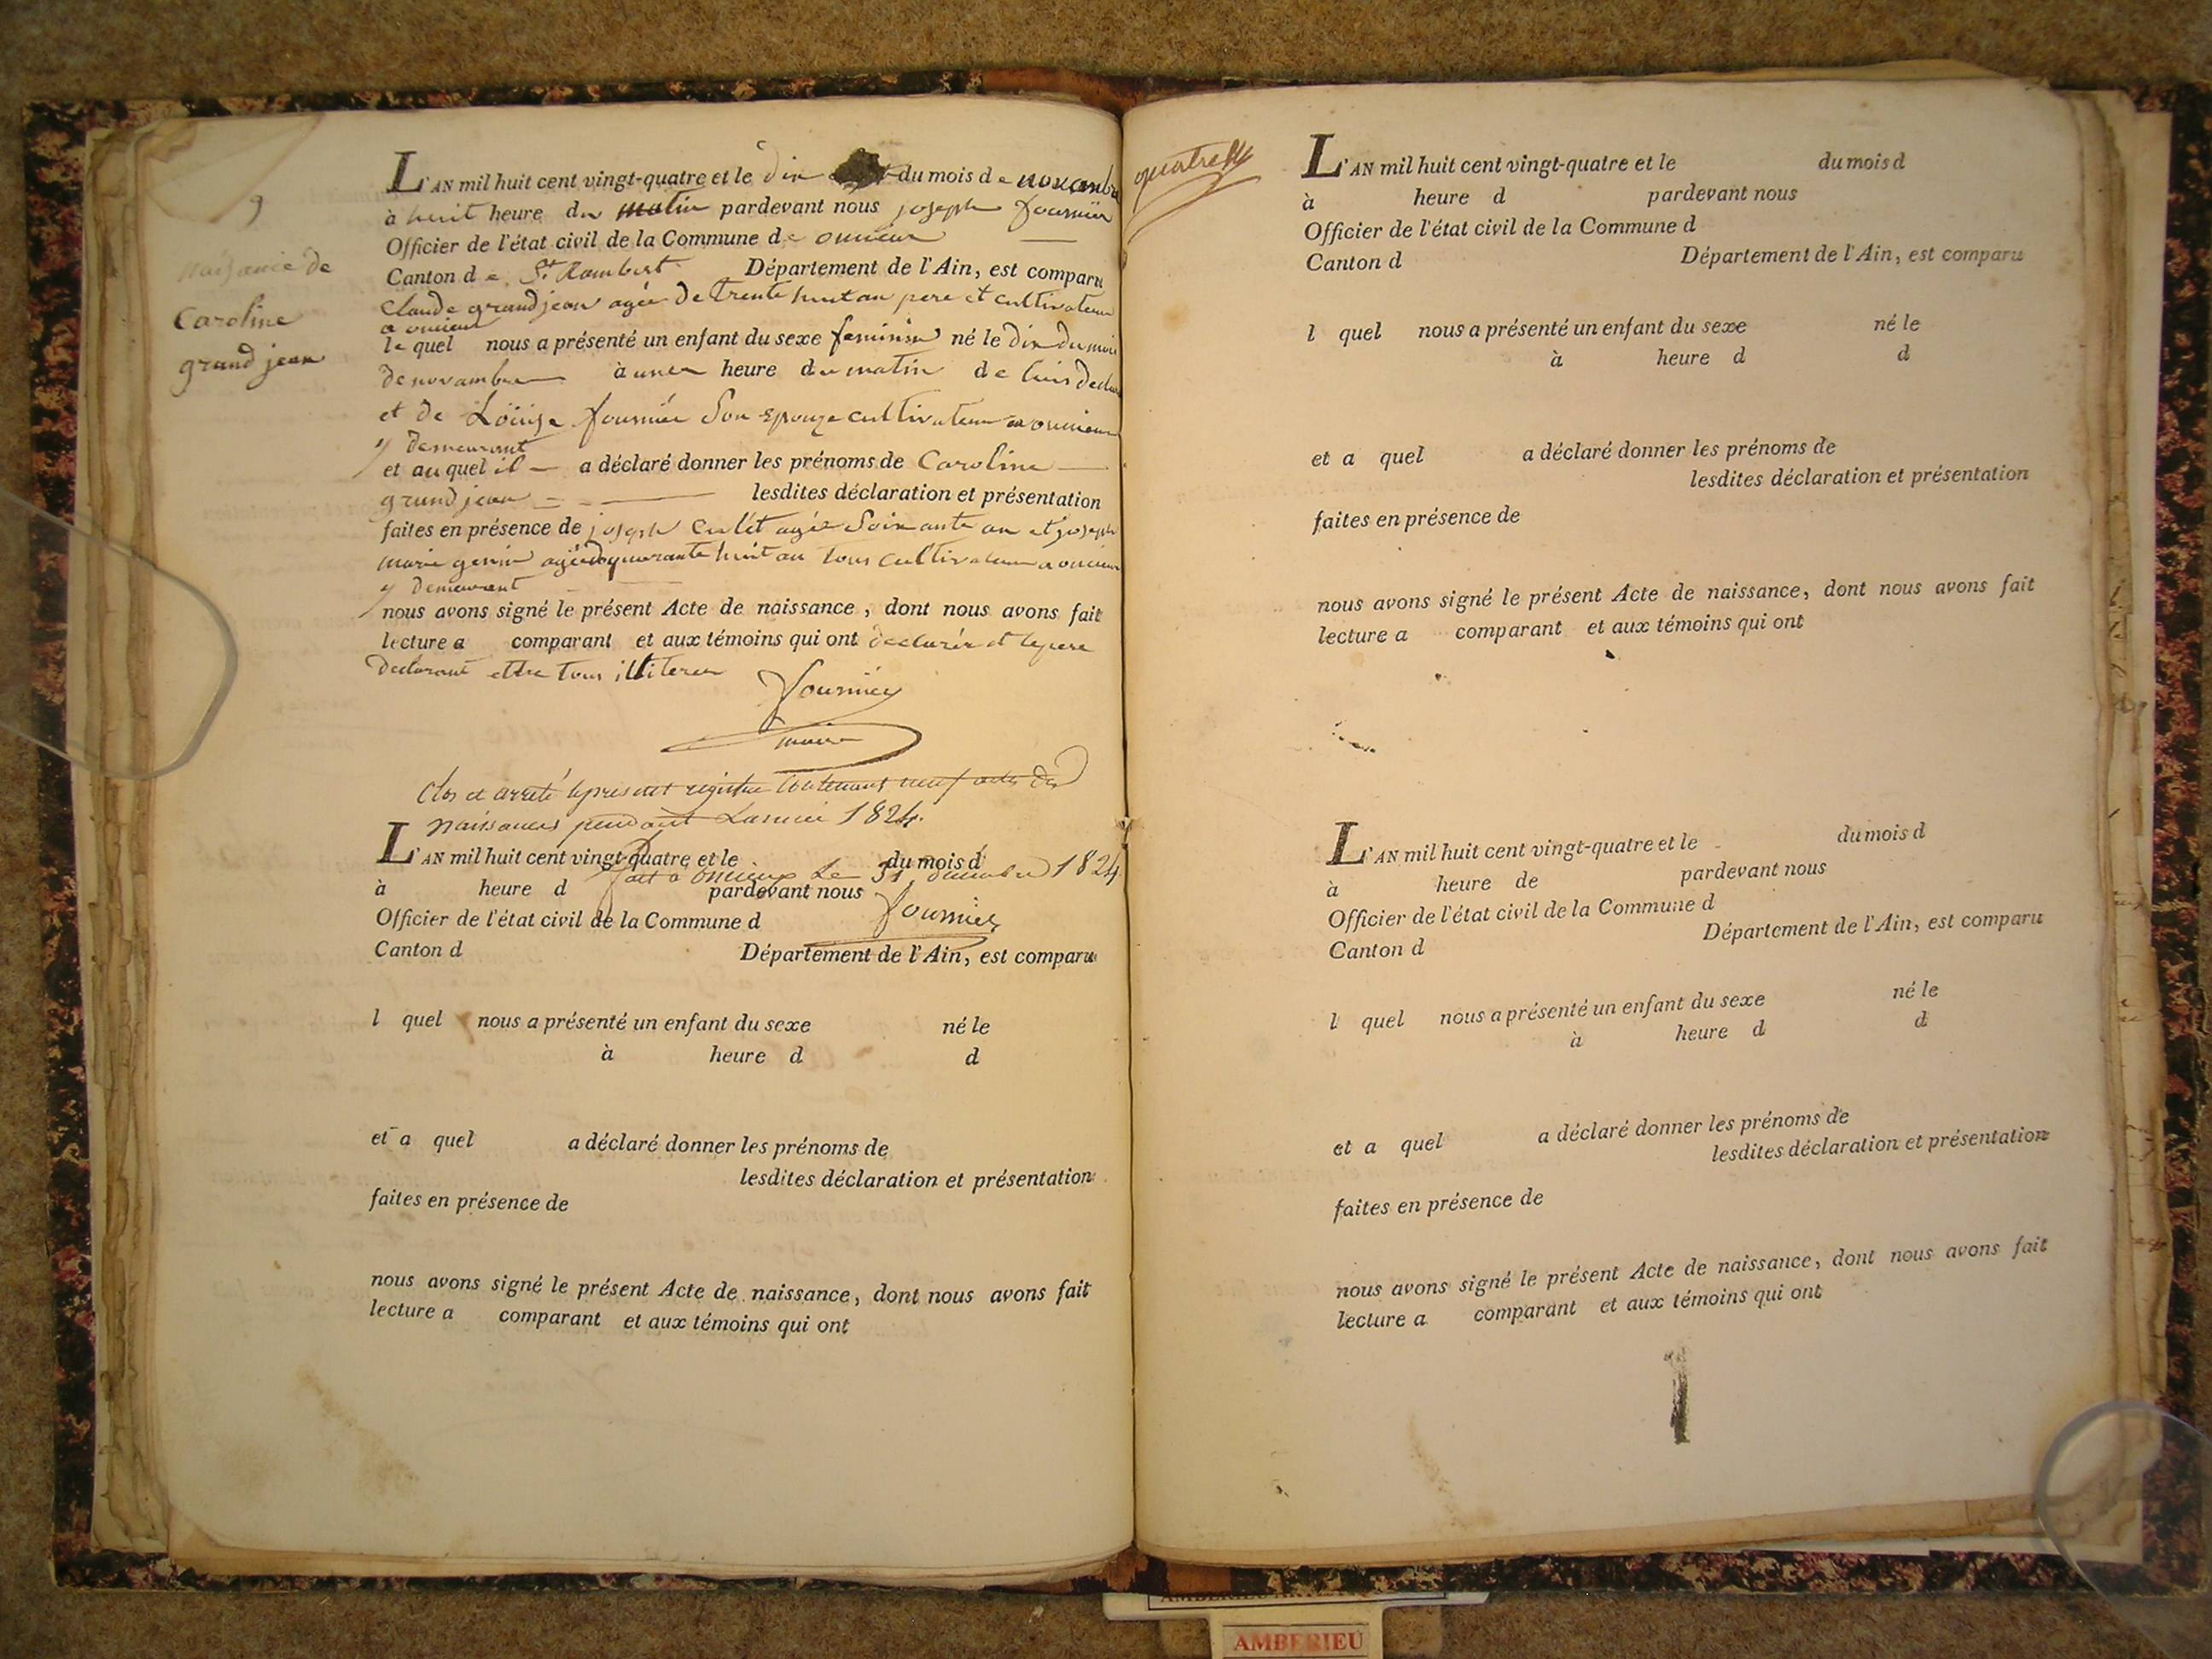 9
naissance de
Caroline
grand jean
L'AN mil huit cent vingt-quatre et le dix du mois de novambre
à huit heure du matin pardevant nous joseph fournier
Officier de l'état civil de la Commune de oncieux
Canton de St Rambert Département de l'Ain, est comparu
Claude grandjean agée de trente huit an pere et cultivateur
a oncieux
le quel nous a présenté un enfant du sexe feminin né le dix du mois
de novambre à une heure du matin de luis declarant
et de Loüise fournier Son epouze cultivateur a oncieux
y demeurant
et auquel il a déclaré donner les prénoms de Caroline
grand jean lesdites déclaration et présentation
faites en présence de joseph agée Soixante an et joseph
marie genin agée de quarante huit an tous cultivateur a oncieux
y demeurant
nous avons signé le présent Acte de naissance, dont nous avons fait
lecture a comparant et aux témoins qui ont declarér et le pere
declarant ettre tous illiterer
fournier
maire
Clos et arreté le present registre contenant neuf actes de
naissances pendant L'année 1824.
L'AN mil huit cent vingt-quatre et le du mois d
fait a oncieux Le 31 decembre 1824
à heure d pardevant nous
fournier
Officier de l'état civil de la Commune d
Canton d Département de l'Ain, est comparu
l quel nous a présenté un enfant du sexe né le
à heure d d
et a quel a déclaré donner les prénoms de
lesdites déclaration et présentation
faites en présence de
nous avons signé le présent Acte de naissance, dont nous avons fait
lecture a comparant et aux témoins qui ont
quatre
L'AN mil huit cent vingt-quatre et le du mois d
à heure d pardevant nous
Officier de l'état civil de la Commune d
Canton d Département de l'Ain, est comparu
l quel nous a présenté un enfant du sexe né le
à heure d d
et a quel a déclaré donner les prénoms de
lesdites déclaration et présentation
faites en présence de
nous avons signé le présent Acte de naissance, dont nous avons fait
lecture a comparant et aux témoins qui ont
L'AN mil huit cent vingt-quatre et le du mois d
à heure de pardevant nous
Officier de l'état civil de la Commune d
Canton d Département de l'Ain, est comparu
l quel nous a présenté un enfant du sexe né le
à heure d d
et a quel a déclaré donner les prénoms de
lesdites déclaration et présentation
faites en présence de
nous avons signé le présent Acte de naissance, dont nous avons fait
lecture a comparant et aux témoins qui ont
AMBERIEU